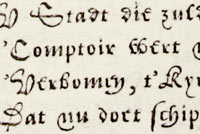 Stadt die zuld
'Comptoir wert
'Verbomen, t'Ky
Dat nu dort schip